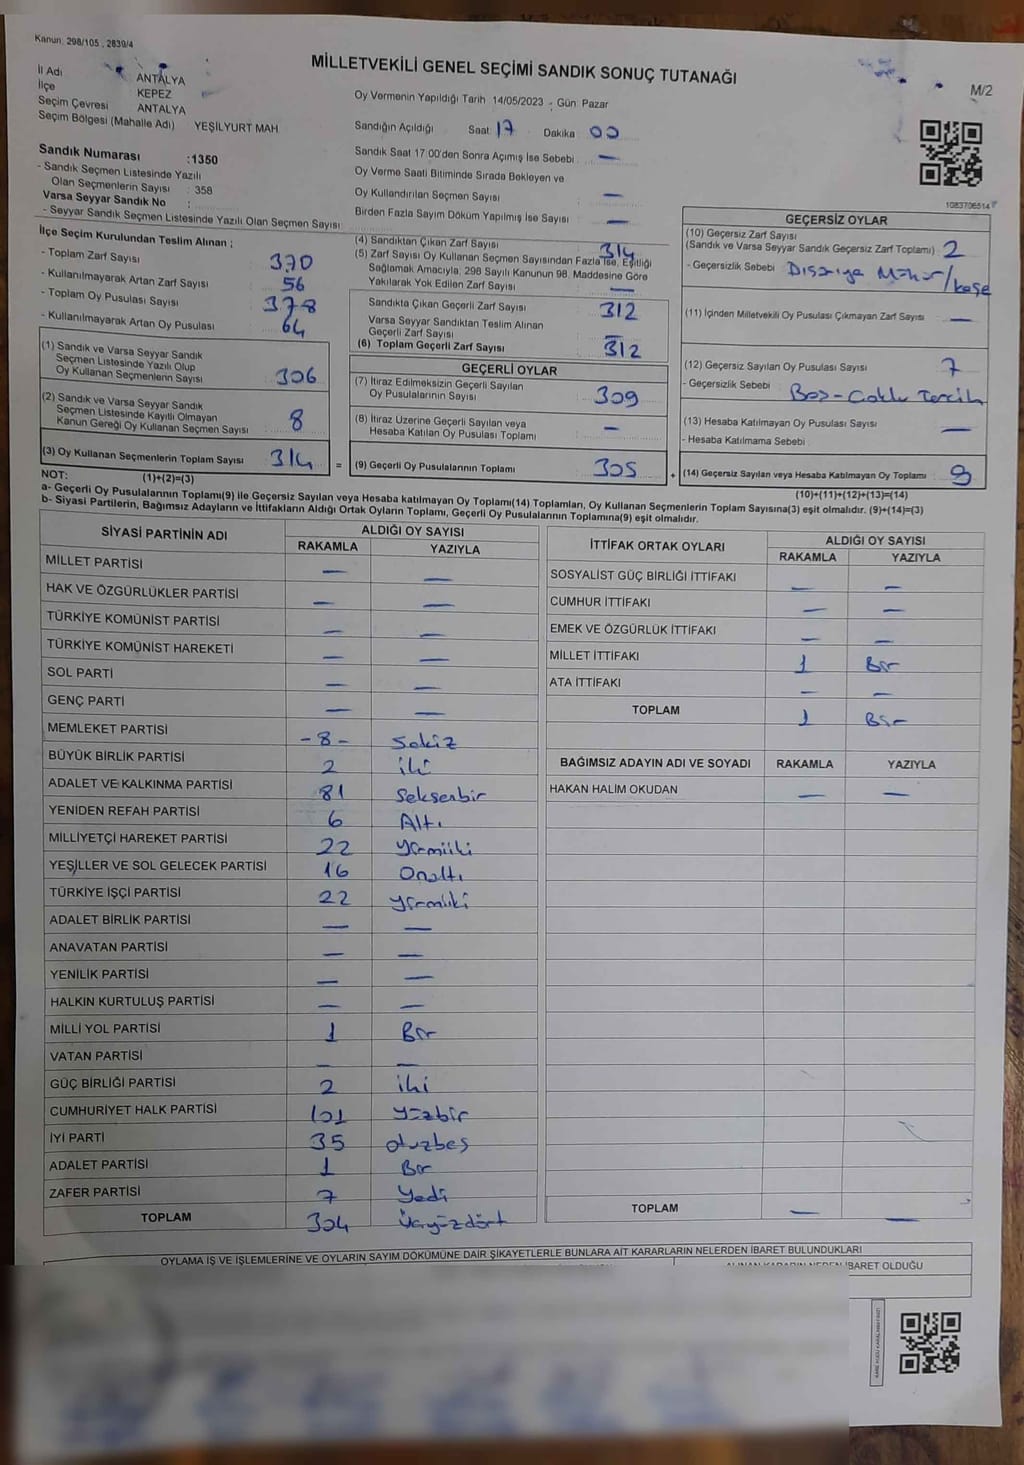 Kanun: 298/105 , 2839/4
MİLLETVEKİLİ GENEL SEÇİMİ SANDIK SONUÇ TUTANAĞI
M/2
İl Adı ANTALYA
İlçe KEPEZ
Seçim Çevresi ANTALYA
Seçim Bölgesi (Mahalle Adı) YEŞİLYURT MAH.
Sandık Numarası :1350
- Sandık Seçmen Listesinde Yazılı
Olan Seçmenlerin Sayısı : 358
Varsa Seyyar Sandık No :
- Seyyar Sandık Seçmen Listesinde Yazılı Olan Seçmen Sayısı:
Oy Vermenin Yapıldığı Tarih 14/05/2023 - Gün: Pazar
Sandığın Açıldığı Saat 17 Dakika 00
Sandık Saat 17:00'den Sonra Açımış İse Sebebi : —
Oy Verme Saati Bitiminde Sırada Bekleyen ve
Oy Kullandırılan Seçmen Sayısı —
Birden Fazla Sayım Döküm Yapılmış İse Sayısı —
1083706514
İlçe Seçim Kurulundan Teslim Alınan ;
- Toplam Zarf Sayısı 370
- Kullanılmayarak Artan Zarf Sayısı 56
- Toplam Oy Pusulası Sayısı 378
- Kullanılmayarak Artan Oy Pusulası 64
(1) Sandık ve Varsa Seyyar Sandık
Seçmen Listesinde Yazılı Olup
Oy Kullanan Seçmenlerin Sayısı 306
(2) Sandık ve Varsa Seyyar Sandık
Seçmen Listesinde Kayıtlı Olmayan
Kanun Gereği Oy Kullanan Seçmen Sayısı 8
(3) Oy Kullanan Seçmenlerin Toplam Sayısı 314
(1)+(2)=(3)
(4) Sandıktan Çıkan Zarf Sayısı 314
(5) Zarf Sayısı Oy Kullanan Seçmen Sayısından Fazla İse, Eşitliği
Sağlamak Amacıyla, 298 Sayılı Kanunun 98. Maddesine Göre
Yakılarak Yok Edilen Zarf Sayısı —
Sandıkta Çıkan Geçerli Zarf Sayısı 312
Varsa Seyyar Sandıktan Teslim Alınan
Geçerli Zarf Sayısı —
(6) Toplam Geçerli Zarf Sayısı 312
GEÇERLİ OYLAR
(7) İtiraz Edilmeksizin Geçerli Sayılan
Oy Pusulalarının Sayısı 309
(8) İtiraz Üzerine Geçerli Sayılan veya
Hesaba Katılan Oy Pusulası Toplamı —
= (9) Geçerli Oy Pusulalarının Toplamı 305
GEÇERSİZ OYLAR
(10) Geçersiz Zarf Sayısı
(Sandık ve Varsa Seyyar Sandık Geçersiz Zarf Toplamı) 2
- Geçersizlik Sebebi : Dışarıya Mühür/kaşe
(11) İçinden Milletvekili Oy Pusulası Çıkmayan Zarf Sayısı —
(12) Geçersiz Sayılan Oy Pusulası Sayısı 7
- Geçersizlik Sebebi : Boş-Çoklu Tercih
(13) Hesaba Katılmayan Oy Pusulası Sayısı —
- Hesaba Katılmama Sebebi :
+ (14) Geçersiz Sayılan veya Hesaba Katılmayan Oy Toplamı 9
(10)+(11)+(12)+(13)=(14)
NOT:
a- Geçerli Oy Pusulalarının Toplamı(9) ile Geçersiz Sayılan veya Hesaba katılmayan Oy Toplamı(14) Toplamları, Oy Kullanan Seçmenlerin Toplam Sayısına(3) eşit olmalıdır. (9)+(14)=(3)
b- Siyasi Partilerin, Bağımsız Adayların ve İttifakların Aldığı Ortak Oyların Toplamı, Geçerli Oy Pusulalarının Toplamına(9) eşit olmalıdır.
SİYASİ PARTİNİN ADI ALDIĞI OY SAYISI
RAKAMLA YAZIYLA
MİLLET PARTİSİ — —
HAK VE ÖZGÜRLÜKLER PARTİSİ — —
TÜRKİYE KOMÜNİST PARTİSİ — —
TÜRKİYE KOMÜNİST HAREKETİ — —
SOL PARTİ — —
GENÇ PARTİ — —
MEMLEKET PARTİSİ -8- Sekiz
BÜYÜK BİRLİK PARTİSİ 2 iki
ADALET VE KALKINMA PARTİSİ 81 Seksenbir
YENİDEN REFAH PARTİSİ 6 Altı
MİLLİYETÇİ HAREKET PARTİSİ 22 yirmiiki
YEŞİLLER VE SOL GELECEK PARTİSİ 16 Onaltı
TÜRKİYE İŞÇİ PARTİSİ 22 yirmiiki
ADALET BİRLİK PARTİSİ — —
ANAVATAN PARTİSİ — —
YENİLİK PARTİSİ — —
HALKIN KURTULUŞ PARTİSİ — —
MİLLİ YOL PARTİSİ 1 Bir
VATAN PARTİSİ — —
GÜÇ BİRLİĞİ PARTİSİ 2 iki
CUMHURİYET HALK PARTİSİ 101 yüzbir
İYİ PARTİ 35 otuzbeş
ADALET PARTİSİ 1 Bir
ZAFER PARTİSİ 7 Yedi
TOPLAM 304 Üçyüzdört
İTTİFAK ORTAK OYLARI ALDIĞI OY SAYISI
RAKAMLA YAZIYLA
SOSYALİST GÜÇ BİRLİĞİ İTTİFAKI — —
CUMHUR İTTİFAKI — —
EMEK VE ÖZGÜRLÜK İTTİFAKI — —
MİLLET İTTİFAKI 1 Bir
ATA İTTİFAKI — —
TOPLAM 1 Bir
BAĞIMSIZ ADAYIN ADI VE SOYADI RAKAMLA YAZIYLA
HAKAN HALİM OKUDAN — —
TOPLAM — —
OYLAMA İŞ VE İŞLEMLERİNE VE OYLARIN SAYIM DÖKÜMÜNE DAİR ŞİKAYETLERLE BUNLARA AİT KARARLARIN NELERDEN İBARET BULUNDUKLARI
İBARET OLDUĞU